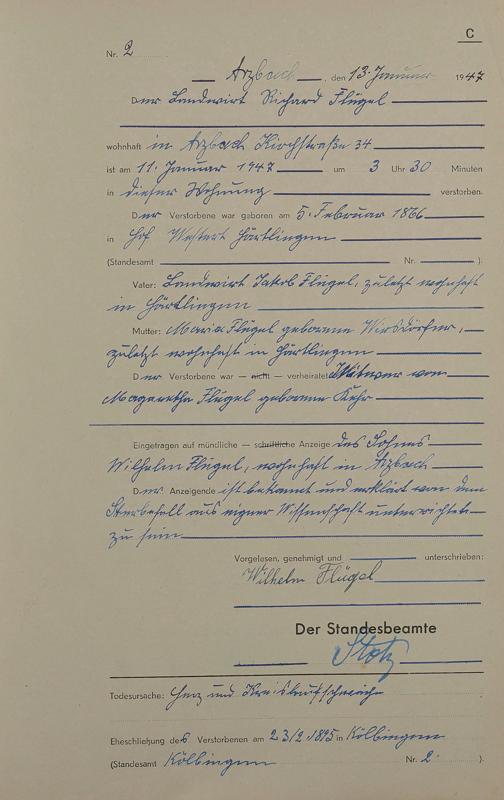 C
Nr. 2
Arzbach, den 13. Januar 1947
Der Landwirt Richard Flügel
wohnhaft in Arzbach Kirchstraße 34
ist am 11. Januar 1947 um 3 Uhr 30 Minuten
in dieser Wohnung verstorben.
Der Verstorbene war geboren am 5. Februar 1866
in Hof Westert Härtlingen
(Standesamt Nr. ).
Vater: Landwirt Jakob Flügel, zuletzt wohnhaft
in Härtlingen
Mutter: Maria Flügel geborene Wirsdörfer,
zuletzt wohnhaft in Härtlingen
Der Verstorbene war — nicht — verheiratet Witwer von
Magaretha Flügel geborene Kehr
Eingetragen auf mündliche — schriftliche Anzeige des Sohnes
Wilhelm Flügel, wohnhaft in Arzbach
Der Anzeigende ist bekannt und erklärt von dem
Sterbefall aus eigner Wissenschaft unterrichtet
zu sein
Vorgelesen, genehmigt und unterschrieben:
Wilhelm Flügel
Der Standesbeamte
Stotz
Todesursache: Herz und Kreislaufschwäche
Eheschließung des Verstorbenen am 23/2. 1895 in Kölbingen
(Standesamt Kölbingen Nr. 2 ).